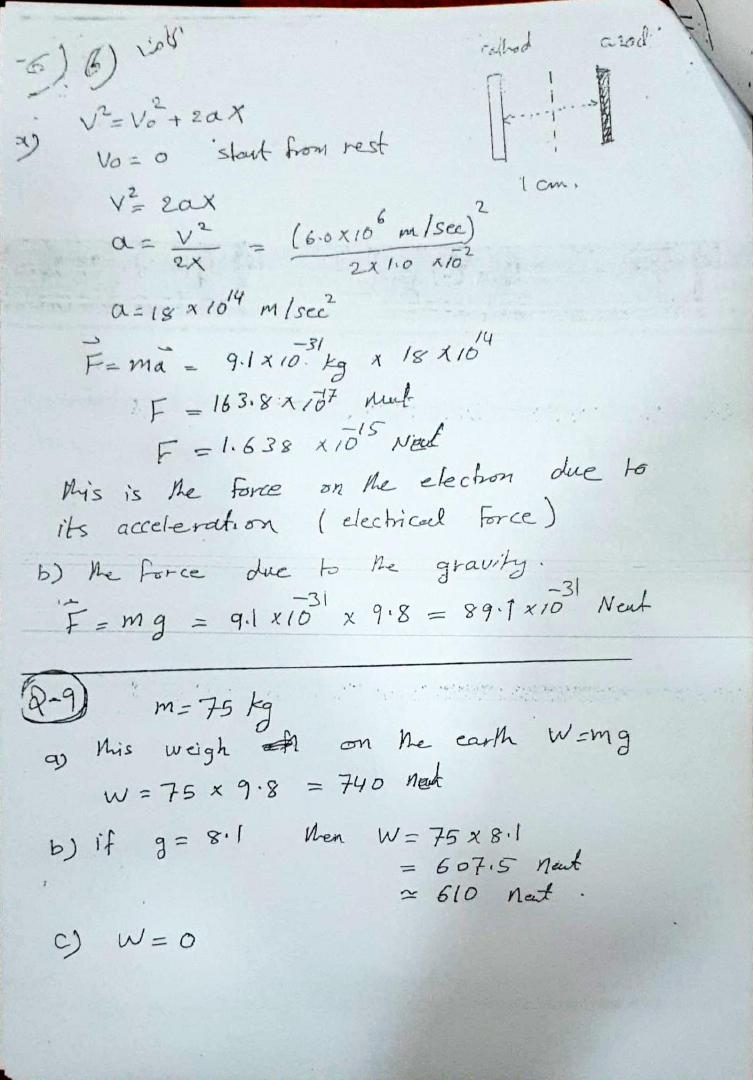 6)
cathod
anod
a) V² = V₀² + 2aX
V₀ = 0 start from rest
1 cm.
V² = 2aX
a = V² / 2X = (6.0 x 10⁶ m/sec)² / 2 x 1.0 x 10⁻²
a = 18 x 10¹⁴ m/sec²
F⃗ = ma⃗ = 9.1 x 10⁻³¹ kg x 18 x 10¹⁴
F = 163.8 x 10⁻¹⁷ Newt
F = 1.638 x 10⁻¹⁵ Newt
this is the force on the electron due to
its acceleration (electrical Force)
b) the force due to the gravity.
F⃗ = mg = 9.1 x 10⁻³¹ x 9.8 = 89.1 x 10⁻³¹ Newt
Q-9 m = 75 kg
a) this weigh on the earth W = mg
W = 75 x 9.8 = 740 Newt
b) if g = 8.1 then W = 75 x 8.1
= 607.5 Newt
≃ 610 Newt.
c) W = 0